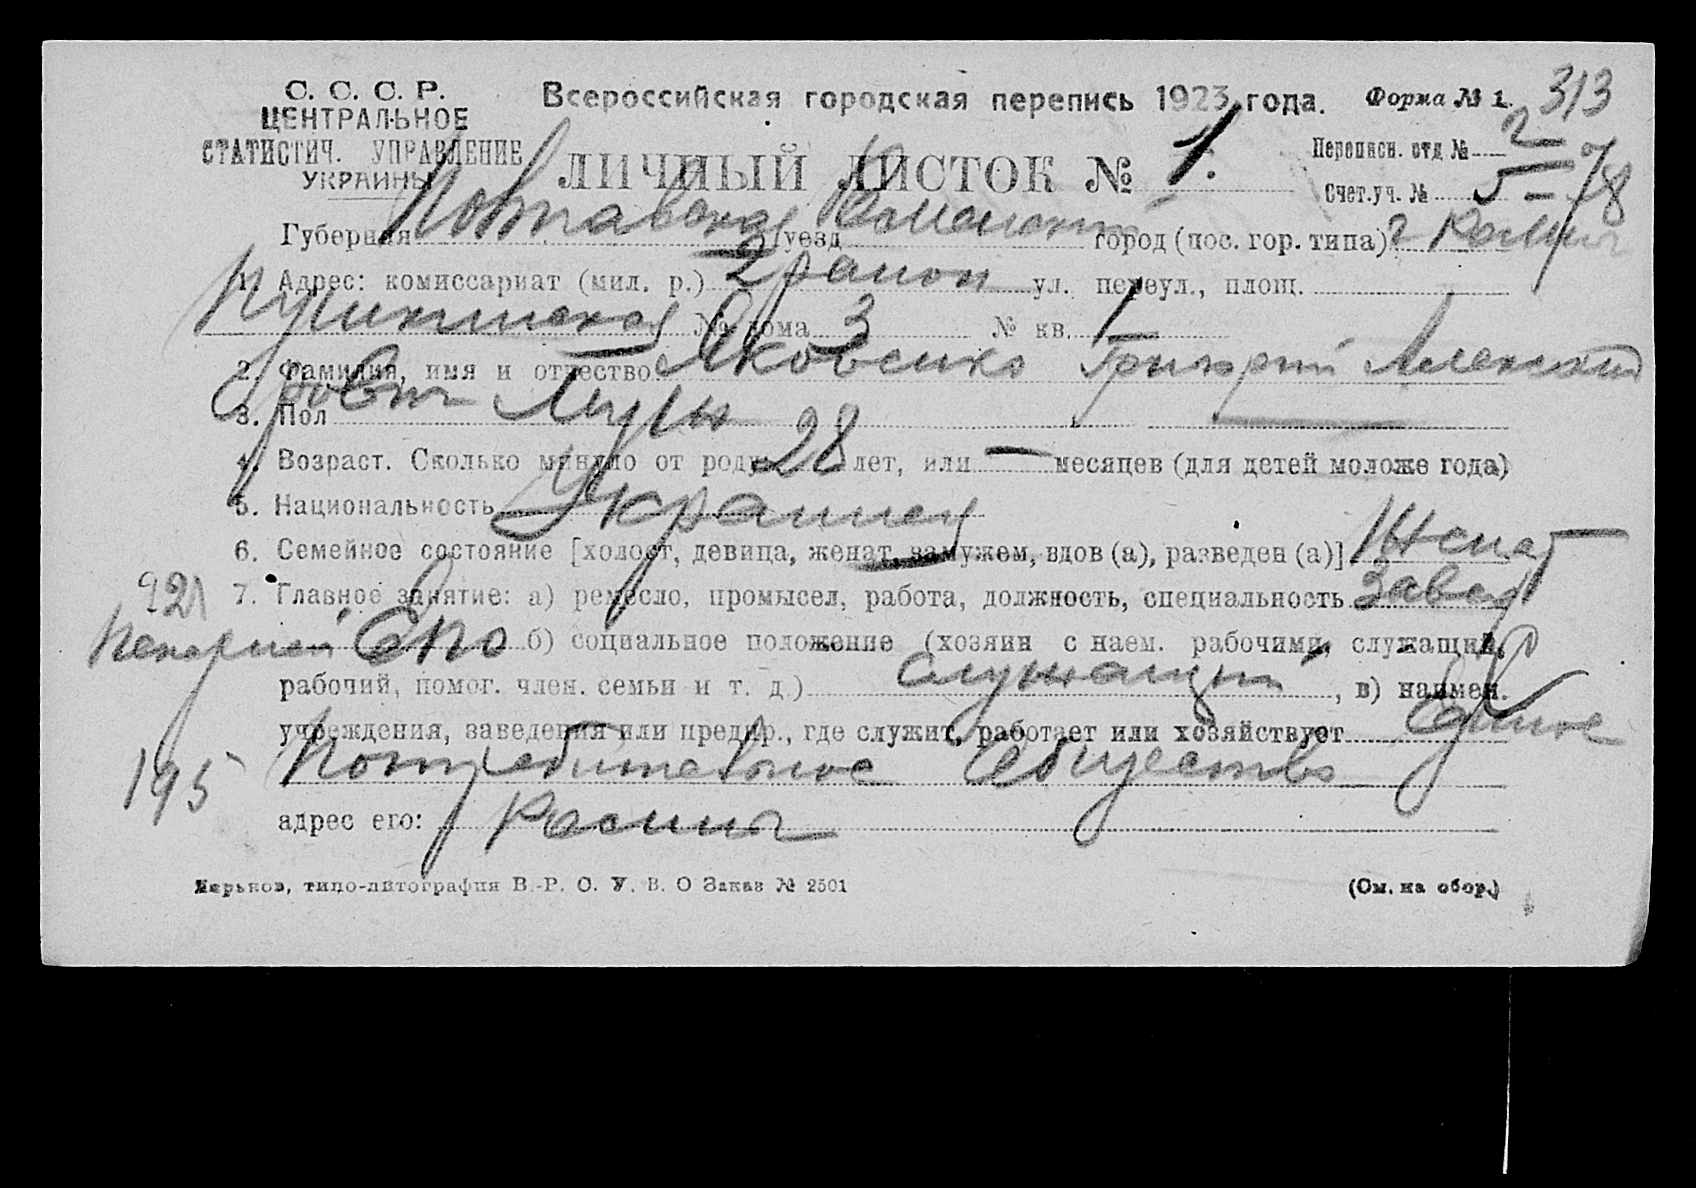 С. С. С. Р.
ЦЕНТРАЛЬНОЕ
СТАТИСТИЧ. УПРАВЛЕНИЕ
УКРАИНЫ
Всероссийская городская перепись 1923 года.
Форма № 1. 313
ЛИЧНЫЙ ЛИСТОК № 1.
Переписн. отд № 2
Счет.уч. № 5 – 78
Губерния Полтавская уезд Роменский город (пос. гор. типа) г Ромны
1. Адрес: комиссариат (мил. р.) 2 район ул. переул., площ.
Пушкинская № дома 3 № кв. 1
2. Фамилия, имя и отчество Яковенко Григорий Александ
рович
3. Пол Муж
4. Возраст. Сколько минуло от роду 28 лет, или — месяцев (для детей моложе года)
5. Национальность Украинец
6. Семейное состояние [холост, девица, женат, замужем, вдов (а), разведен (а)] Женат
921
7. Главное занятие: а) ремесло, промысел, работа, должность, специальность Завед
Пекарней ЕПО б) социальное положение (хозяин с наем. рабочими, служащий,
рабочий, помог. член. семьи и т. д.) служащий, в) наимен.
учреждения, заведения или предпр., где служит, работает или хозяйствует Единое
195
Потребительное Общество
адрес его: Ромны
Харьков, типо-литография В.-Р. О. У. В. О Заказ № 2501
(См. на обор.)